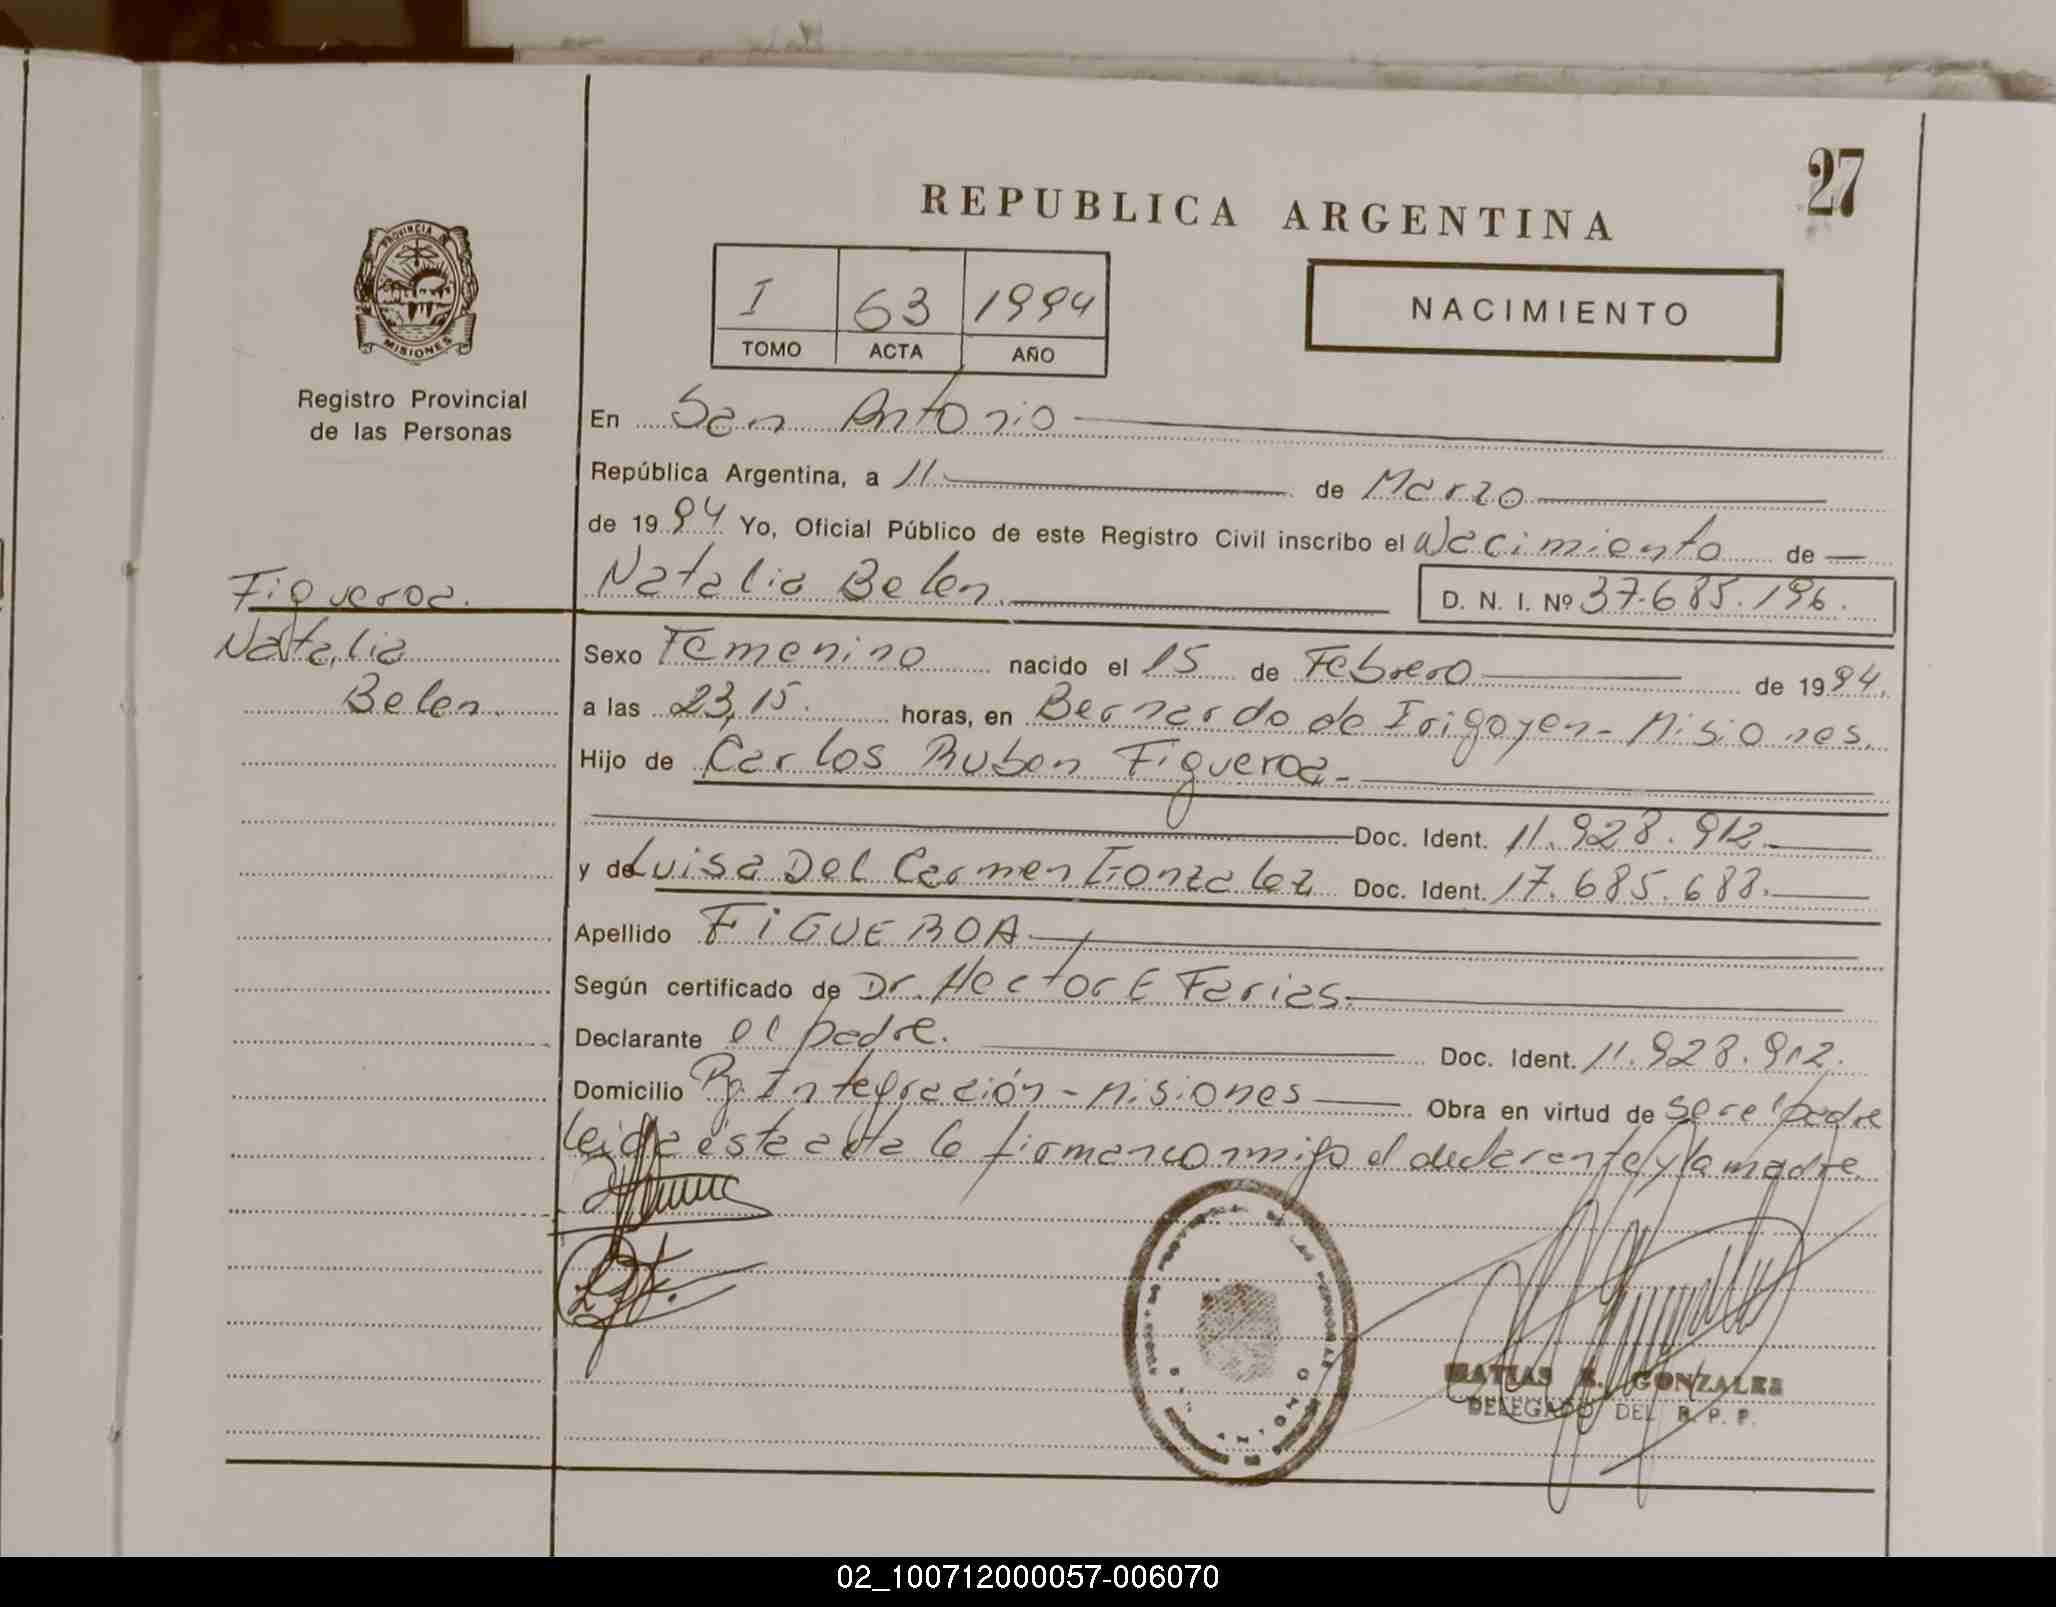 27
REPUBLICA ARGENTINA
PROVINCIA DE
MISIONES
I 63 1994
TOMO ACTA AÑO
NACIMIENTO
Registro Provincial
de las Personas
En San Antonio
República Argentina, a 11 de Marzo
de 1994 Yo, Oficial Público de este Registro Civil inscribo el Nacimiento de
Figueroa.
Natalia
Belen.
Natalia Belen. D. N. I. Nº 37.685.196.
Sexo Femenino nacido el 15 de Febrero de 1994.
a las 23,15. horas, en Bernardo de Irigoyen - Misiones.
Hijo de Carlos Ruben Figueroa -
Doc. Ident. 11.928.912.
y de Luisa Del Carmen Gonzalez Doc. Ident. 17.685.688.
Apellido FIGUEROA
Según certificado de Dr. Hector E Farias.
Declarante el padre. Doc. Ident. 11.928.912.
Domicilio Integración - Misiones Obra en virtud de ser el padre
leida esta acta la firman conmigo el declarante y la madre.
MATIAS R. GONZALES
DELEGADO DEL R. P. P.
02_100712000057-006070